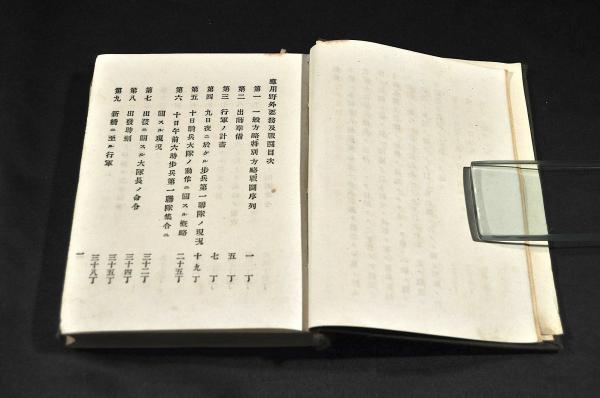 應用野外要務及戰鬪目次
第一 一般方略特別方略戰鬪序列 一丁
第二 出師準備 五丁
第三 行軍ノ計畫 七丁
第四 九日夜ニ於ケル步兵第一聯隊ノ現況 十九丁
第五 十日騎兵大隊ノ動作ニ關スル概略
第六 十日午前六時步兵第一聯隊集合ニ 二十五丁
關スル現況
第七 出發ニ關スル大隊長ノ命令 三十二丁
第八 出發時刻 三十四丁
第九 新橋ニ至ル行軍 三十五丁
三十八丁
一